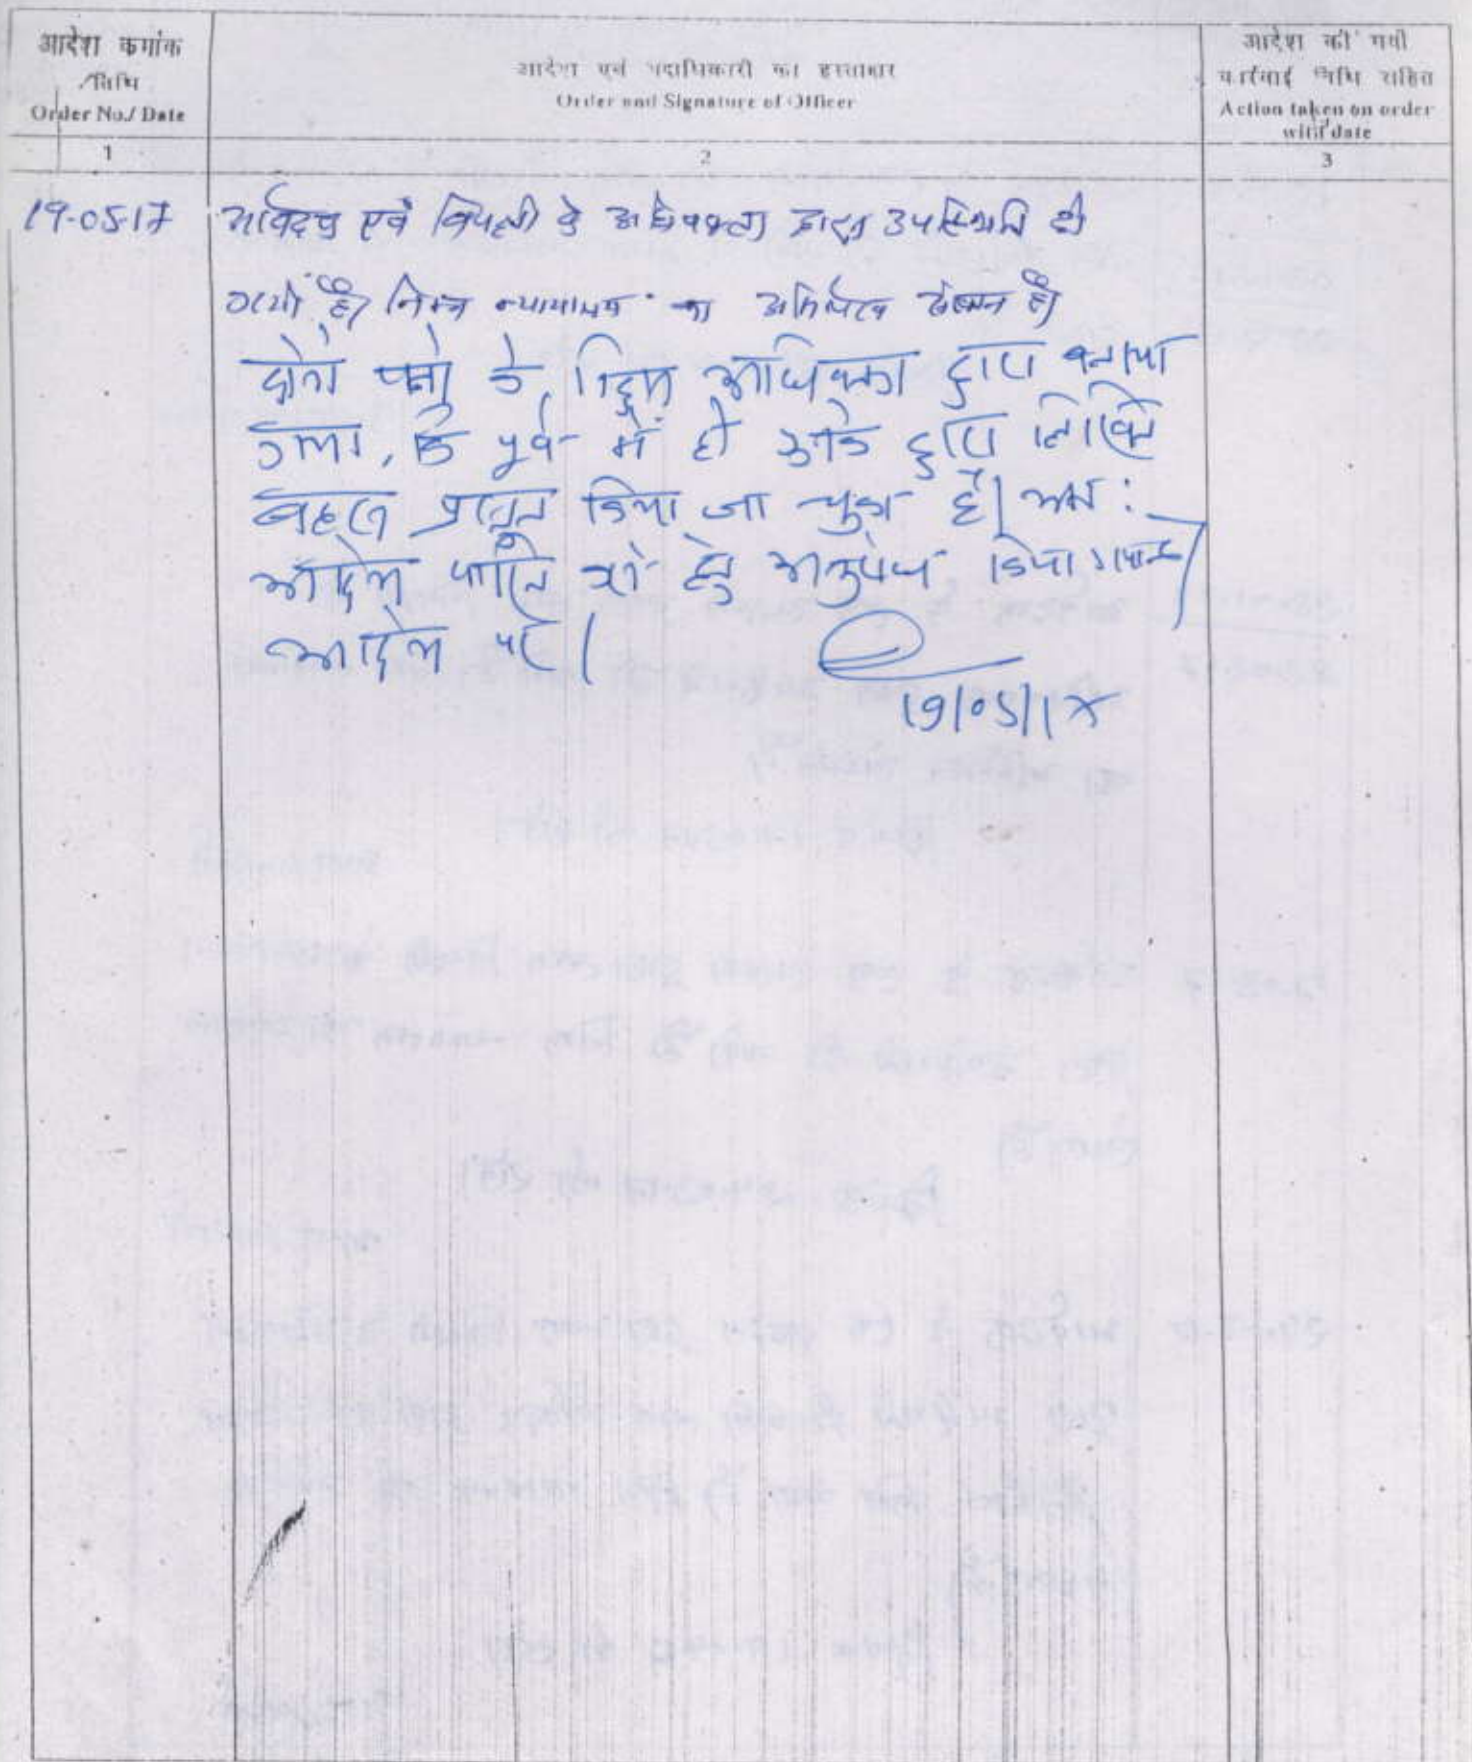 आदेश कमांक
/तिथि
Order No./ Date
आदेश एवं पदाधिकारी का हस्ताक्षर
Order and Signature of Officer
आदेश की गयी
कार्रवाई तिथि सहित
Action taken on order
with date
1
2
3
19-05-17
आवेदक एवं विपक्षी के अधिवक्ता द्वारा उपस्थिति दी
गयी है। निम्न न्यायालय का अभिलेख संलग्न है।
दोनों पक्षों के विद्वान अधिवक्ता द्वारा बताया
गया, कि पूर्व में ही उनके द्वारा लिखित
बहस प्रस्तुत किया जा चुका है। अतः
आदेश पारित करने हेतु अनुरोध किया गया है।
आदेश पर।
19/05/17